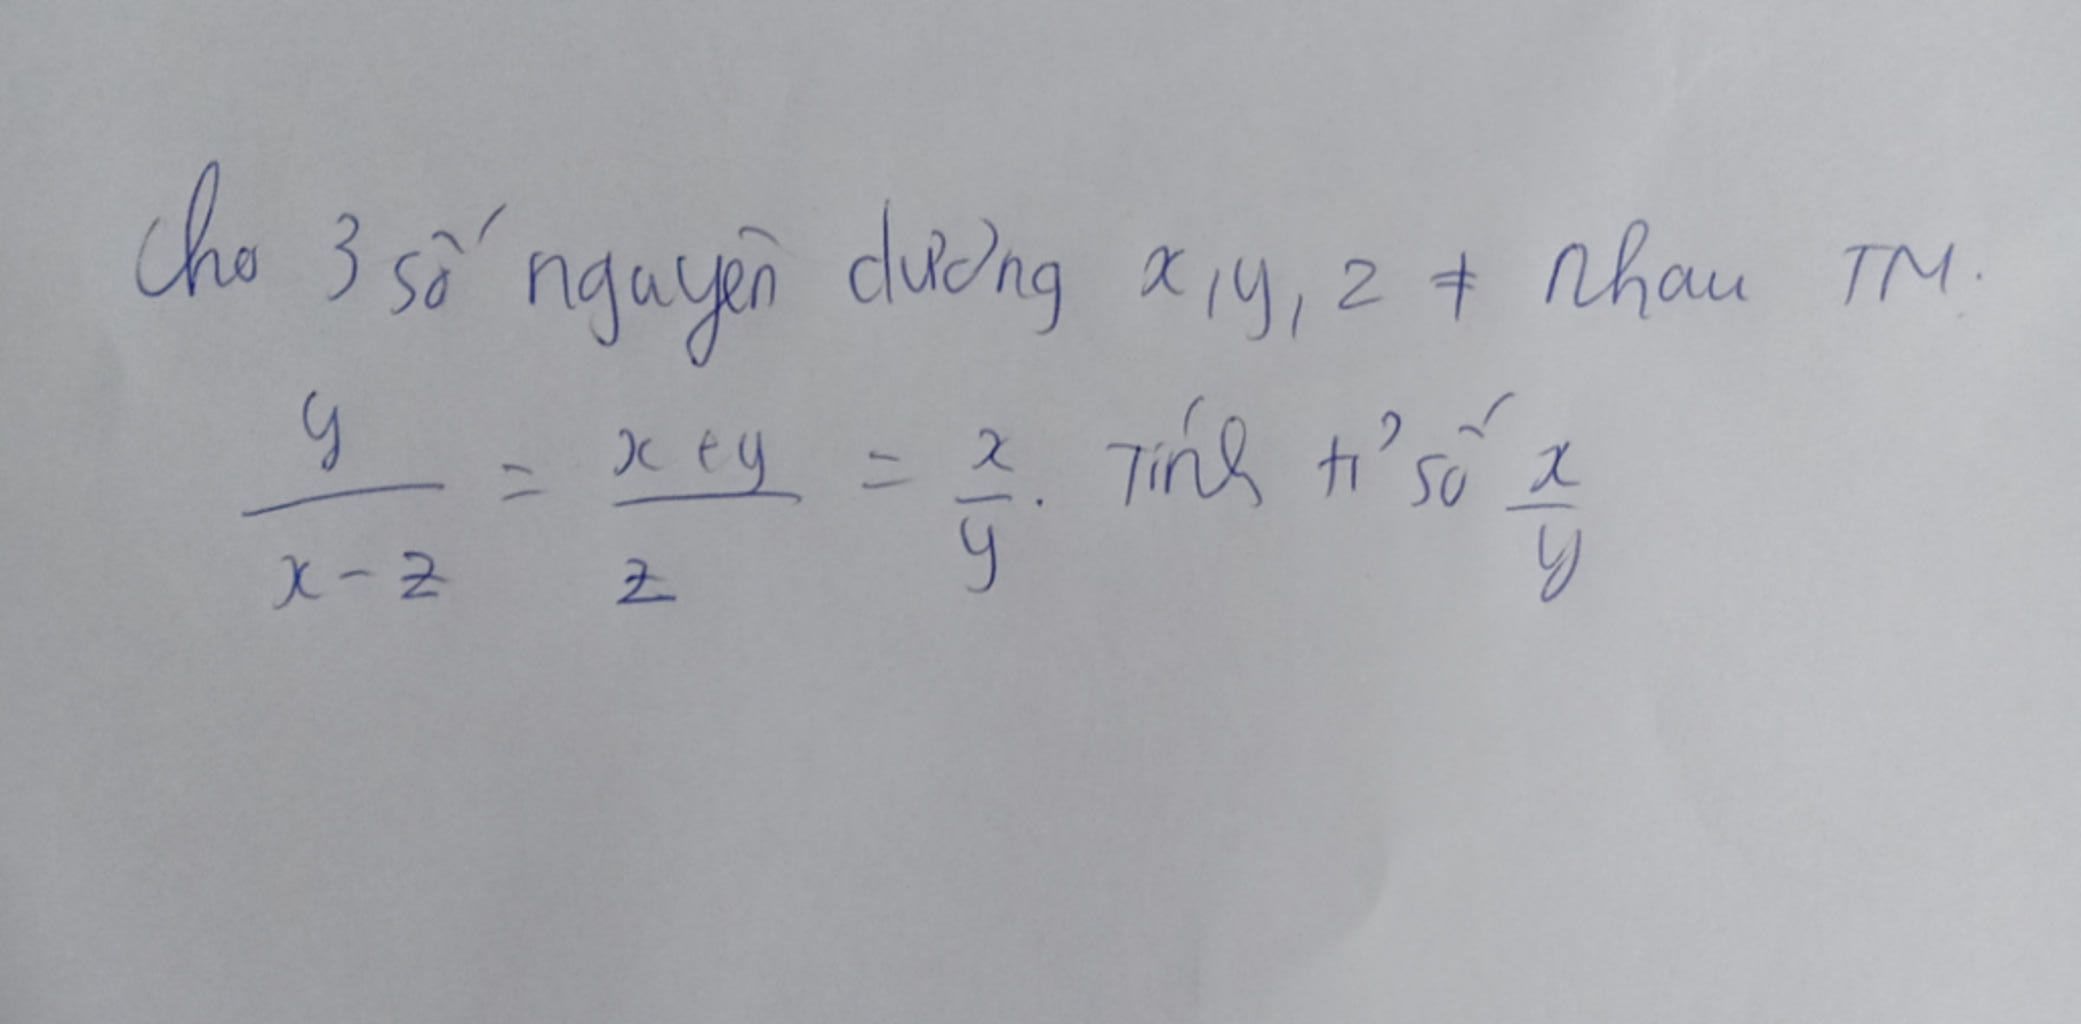 Cho 3 số nguyên dương x, y, z ≠ nhau TM.
y/(x-z) = (x+y)/z = x/y. Tính tỉ số x/y